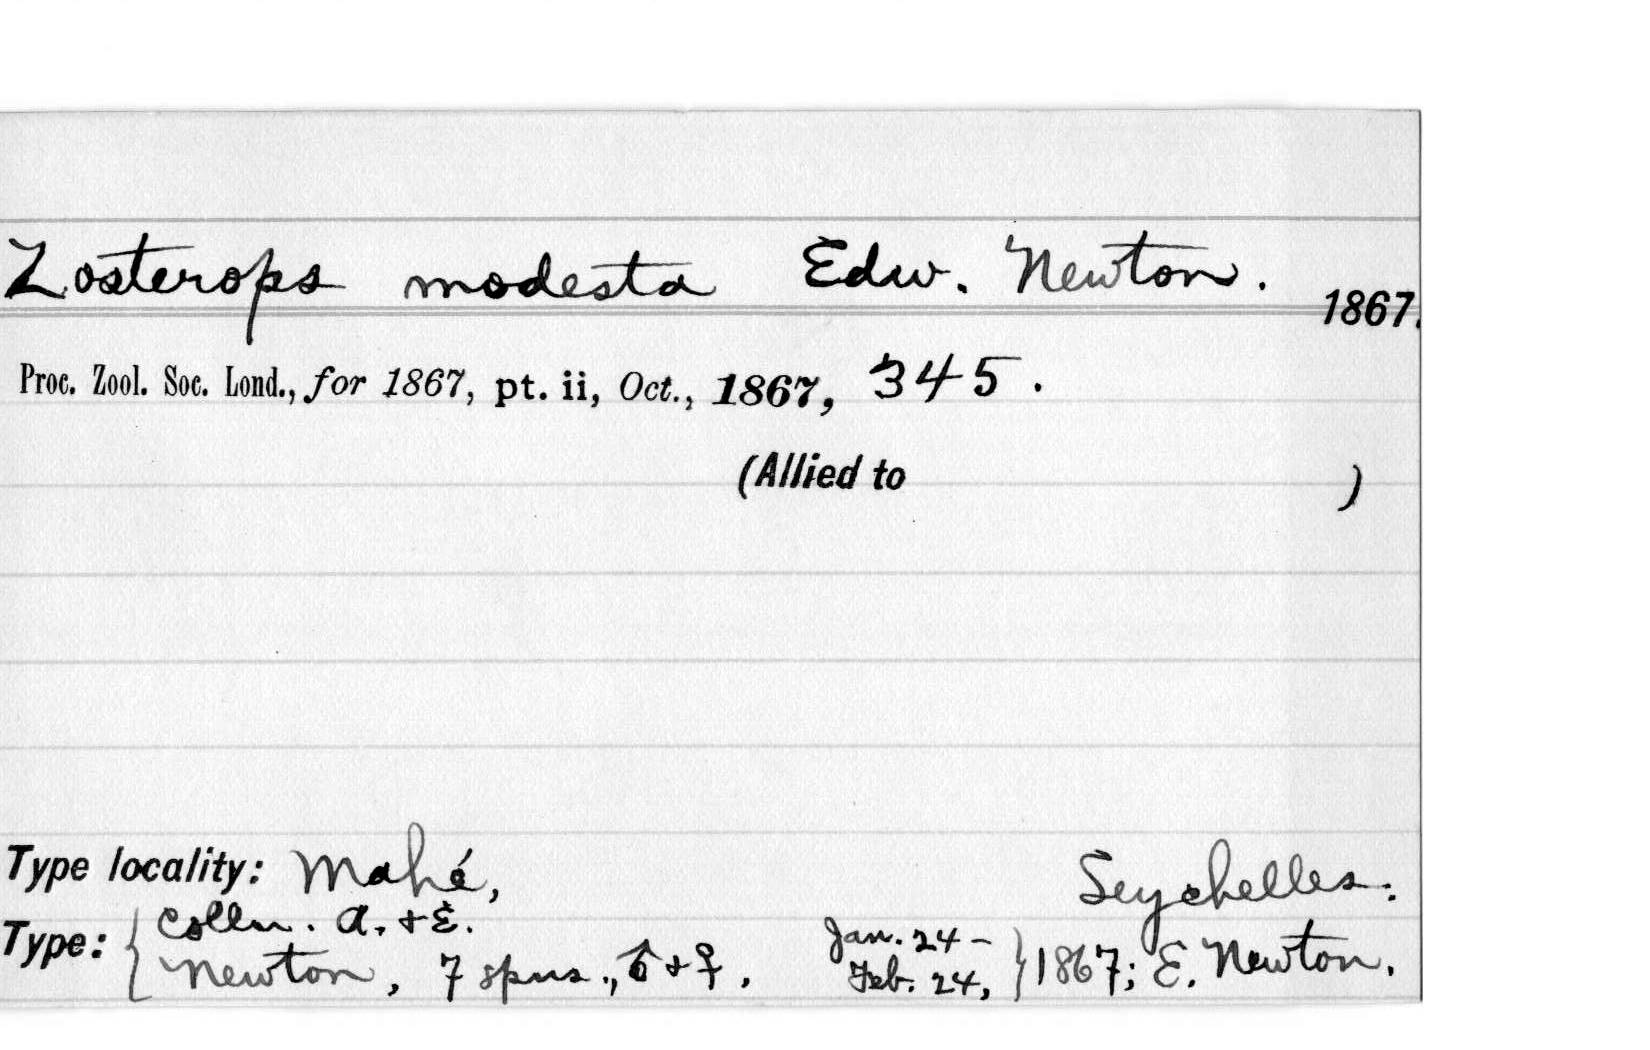 Zosterops modesta Edw. Newton.
1867.
Proc. Zool. Soc. Lond., for 1867, pt. ii, Oct., 1867, 345.
(Allied to )
Type locality: Mahé, Seychelles.
Type: { Colln. A. + E. Newton, 7 spns., ♂ + ♀, Jan. 24 - Feb. 24, } 1867; E. Newton.